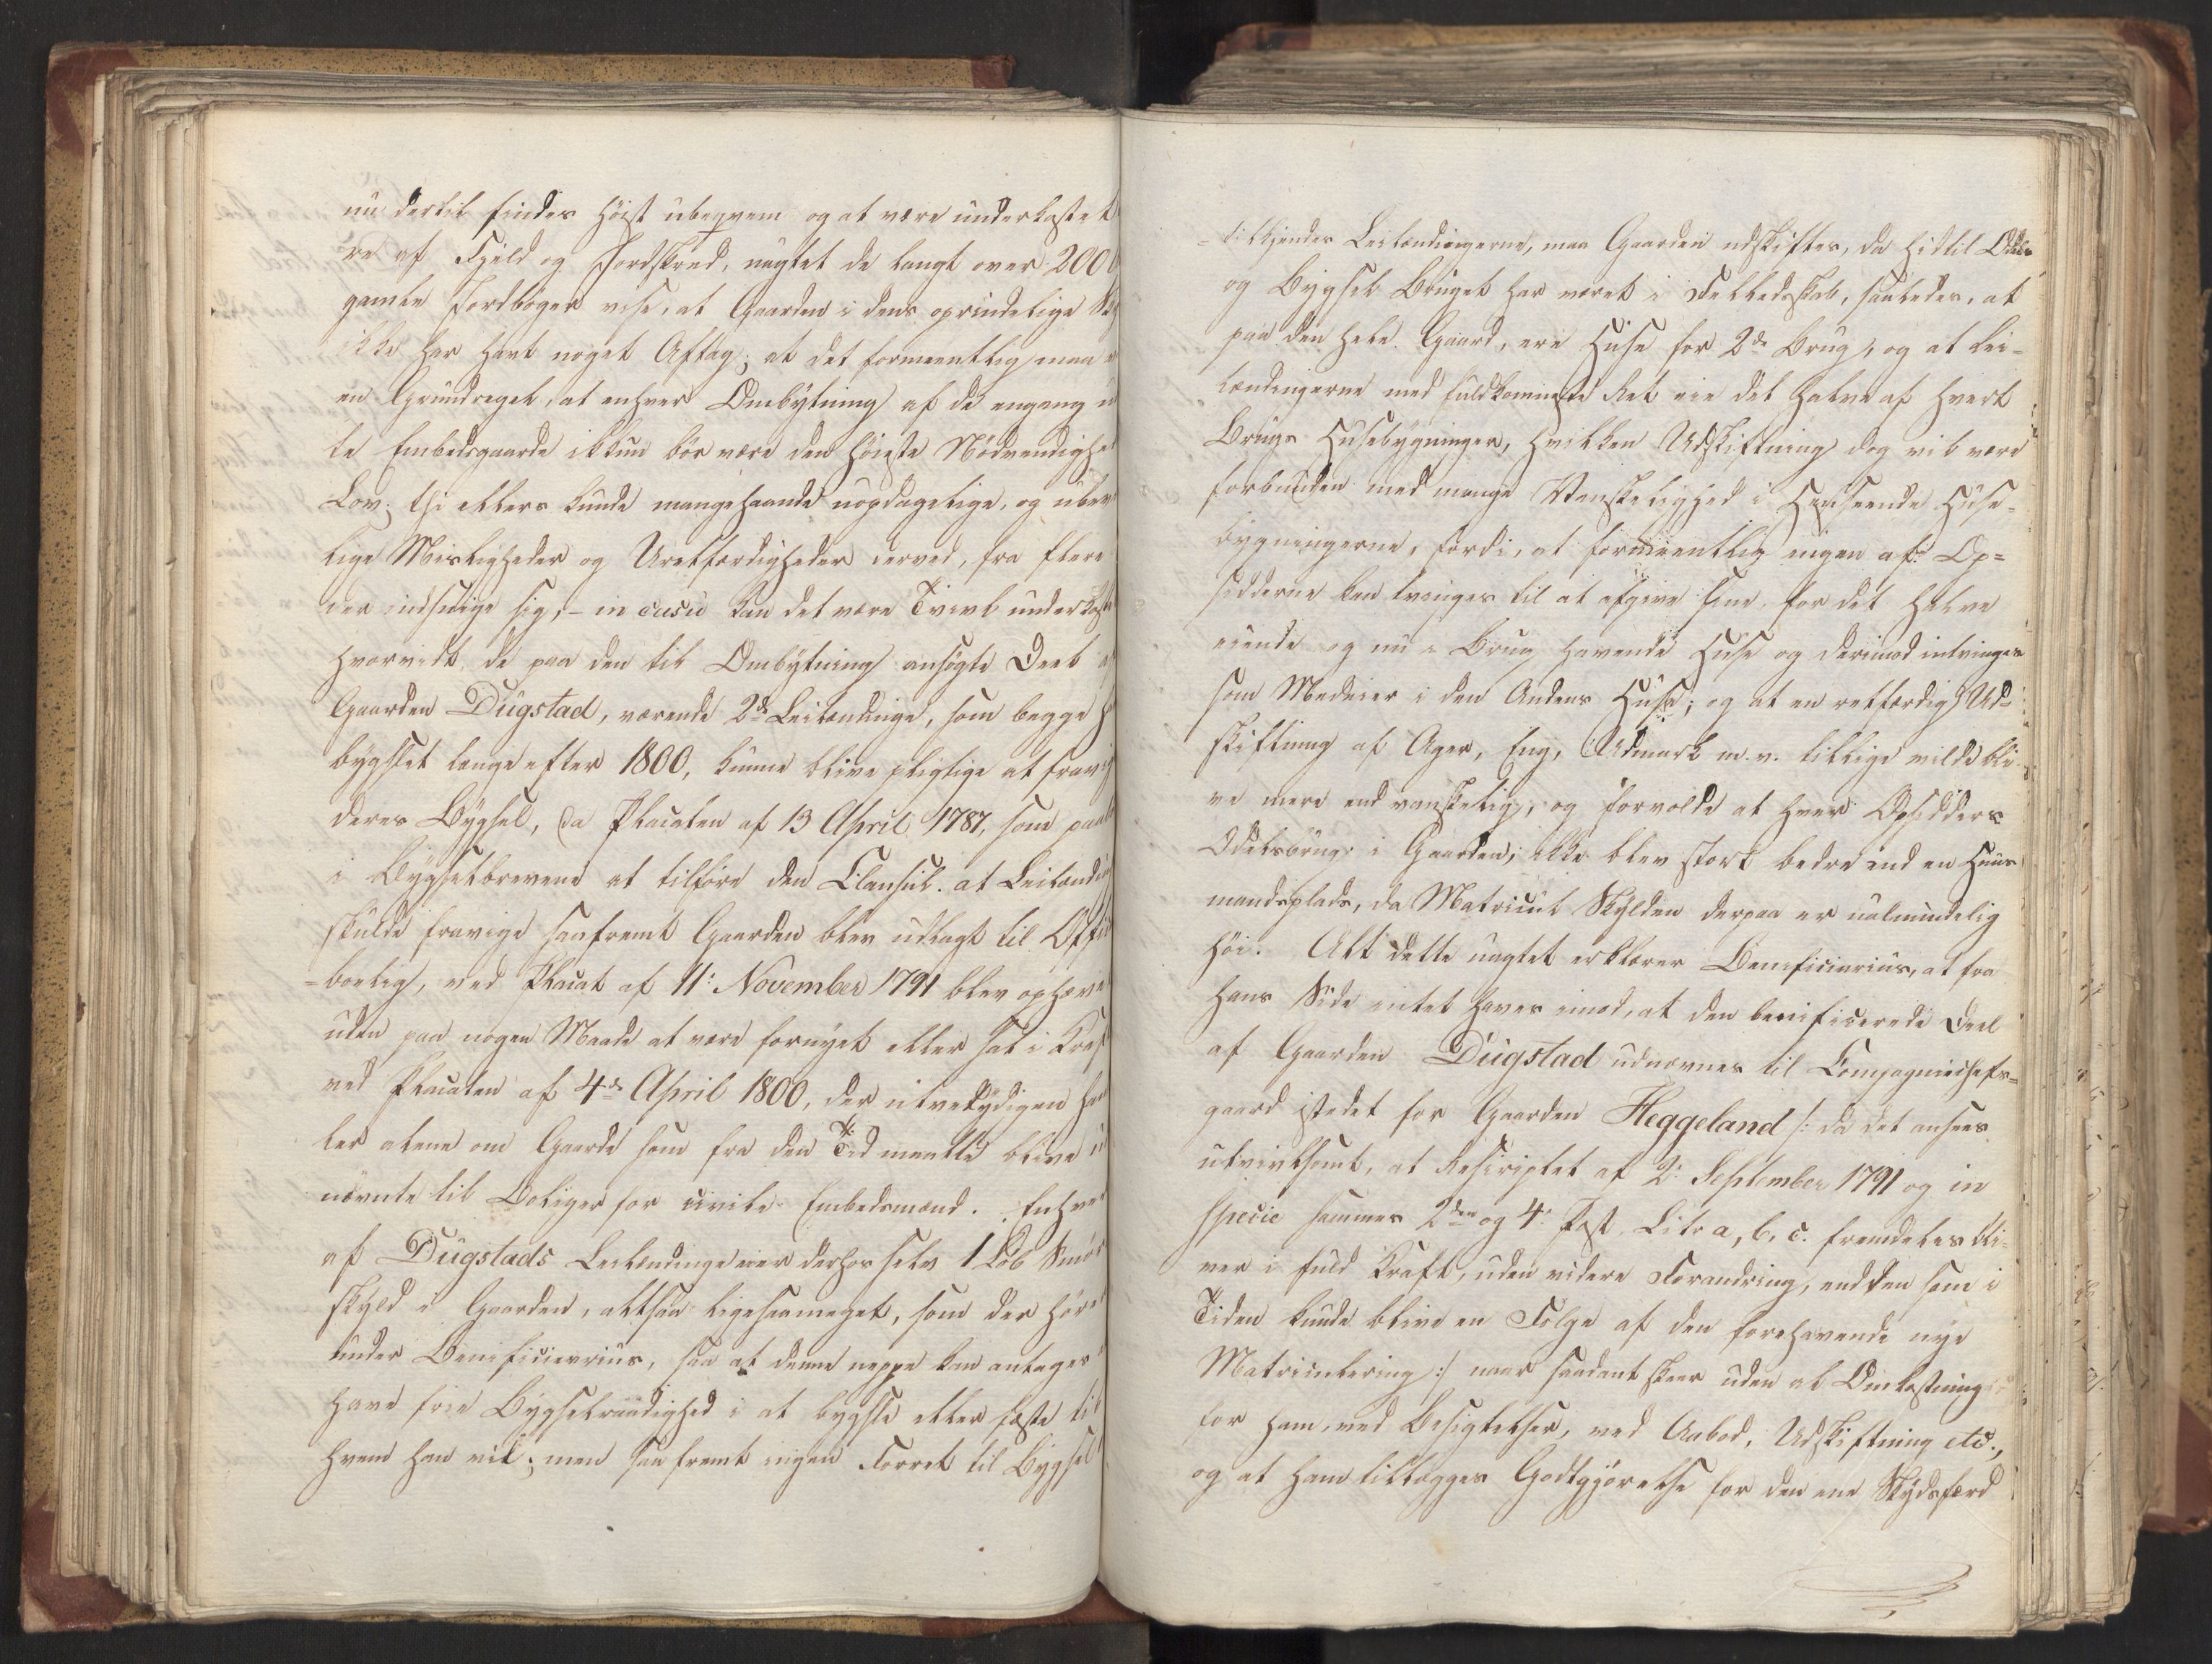 nu dertil findes höist ubeqvem og at være underkastet
re af Fjeld og Jordskred, uagtet de langt over 200
gamle Jordböger vise, at Gaarden i dens oprindelige
ikke har havt noget Aftag; at det formeentlig maa
en Grundregel, at enhver Ombytning af de engang
te Embedsgaarde ikkun bör være den höieste Nödvendighed
Lov; thi ellers kunde mangehaande uopdagelige, og
lige Misligheder og Uretfærdigheder derved, fra flere
der indsnige sig, – in casu kan det være Tvivl underkaste
hvorvidt de paa den til Ombytning ansögte Deel
Gaarden Dugstad, værende 2de Leilændinge, som begge
bygslet længe efter 1800, kunne blive pligtige at fravig
deres Bygsel, da Placaten af 13 April 1787, som
i Bygselbrevene at tilföre den Clausul. at Leilænding
skulde fravige saafremt Gaarden blev udlagt til Offi
=boelig, ved Placat af 11: November 1791 blev ophæve
uden paa nogen Maade at være fornyet eller sat i Kraf
ved Placaten af 4de April 1800, der utvetydigen han
ler alene om Gaarde som fra den Tid maatte blive
nævnte til Boliger for civile Embedsmænd. Enhver
af Dugstads Leilændinge eier derhos selv 1 Löb Smör
skyld i Gaarden, altsaa ligesaameget, som der hörer
under Beneficiarius, saa at denne neppe kan antages
have frie Bygselraadighed i at bygsle eller fæste til
hvem han vil; men saafremt ingen Forret til Bygsel
=tilkjendes Leilændingerne, maa Gaarden udskiftes, da hidtil Odels
og Bygsel Bruget har været i Fælledsskab, saaledes, at
paa den hele Gaard, ere Huse for 2de Brug, og at Lei=
lændingerne med fuldkommeste Ret eie det halve af hvert
Brugs Husebygninger, hvilken Udskiftning dog vil være
forbunden med mange Vanskelighed i Henseende Huse=
bygningerne, fordi, at formeentlig ingen af Op=
sidderne kan tvinges til at afgive sine for det halve
eiende og nu i Brug havende Huse og derimod indtvinges
som Medeier i den Andens Huse; og at en retfærdig Ud=
skiftning af Ager, Eng, Udmark m. v. tillige vilde bli=
ve mere end vanskelig, og forvolde at hver Opsidders
Odelsbrug i Gaarden, ikke blev stort bedre end en Huus
mandsplads, da Matricul Skylden derpaa er ualmindelig
höi. Alt dette uagtet erklærer Beneficiarius, at fra
hans Side intet haves imod, at den beneficerede Deel
af Gaarden Dugstad udnævnes til Compagniechefs=
gaard istedet for Gaarden Heggeland /: da det ansees
utvivlsomt, at Rescriptet af 2: September 1791 og in
specie sammes 2den og 4: Post Litr a, b, c. fremdeles bli=
ver i fuld Kraft, uden videre Forandring, end den som i
Tiden kunde blive en Fölge af den forehavende nye
Matriculering :/ naar saadant skeer uden al Omkostning
for ham, ved Besigtelser, ved Aabod, Udskiftning etc.,
og at ham tillægges Godtgjörelse for den ene Skydsfærd